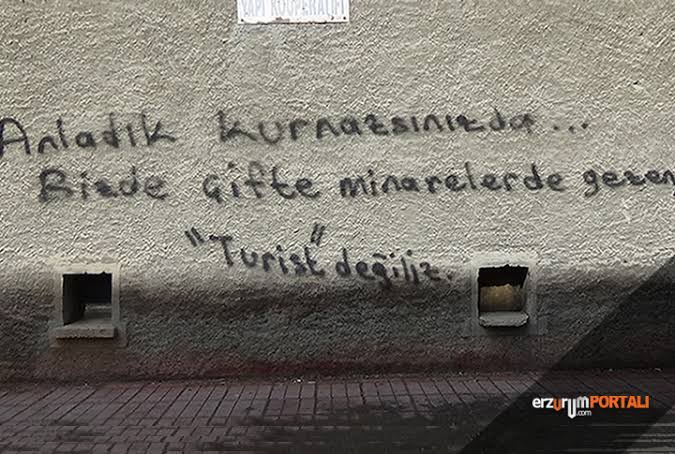 YAPI KOOPERATİFİ
Anladık kurnazsınızda...
Bizde Çifte minarelerde gezen
"Turist" değiliz.
erzurumPORTALI
.com